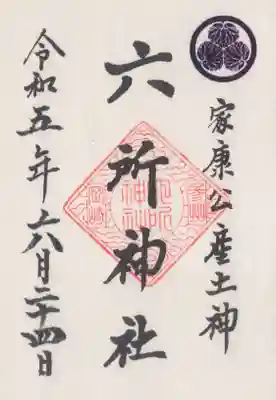 家康公産土神
六所神社
令和五年六月二十四日